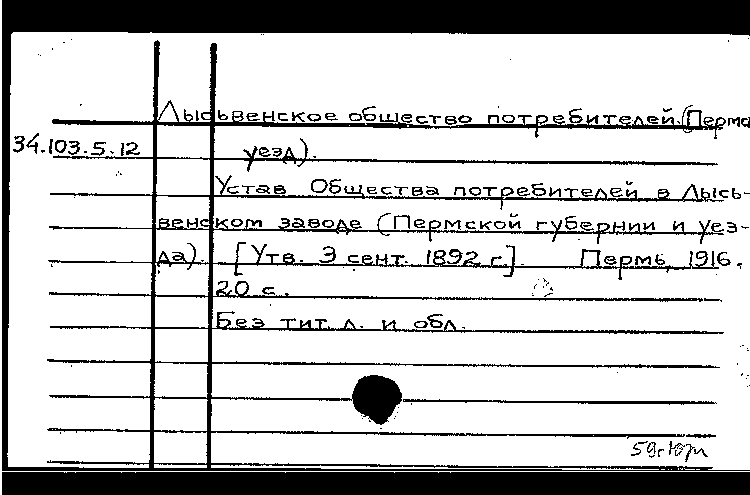 Лысьвенское общество потребителей (Пермс
34.103.5.12 уезд).
Устав Общества потребителей в Лысь-
венском заводе (Пермской губернии и уез-
да). [Утв. 9 сент. 1892 г.]. Пермь, 1916.
20 с.
Без тит. л. и обл.